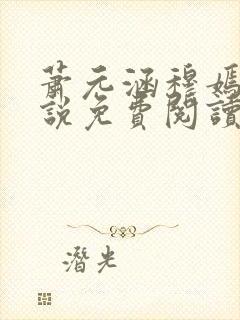 蕭元涵穆媽
說免費閱讀
潛光